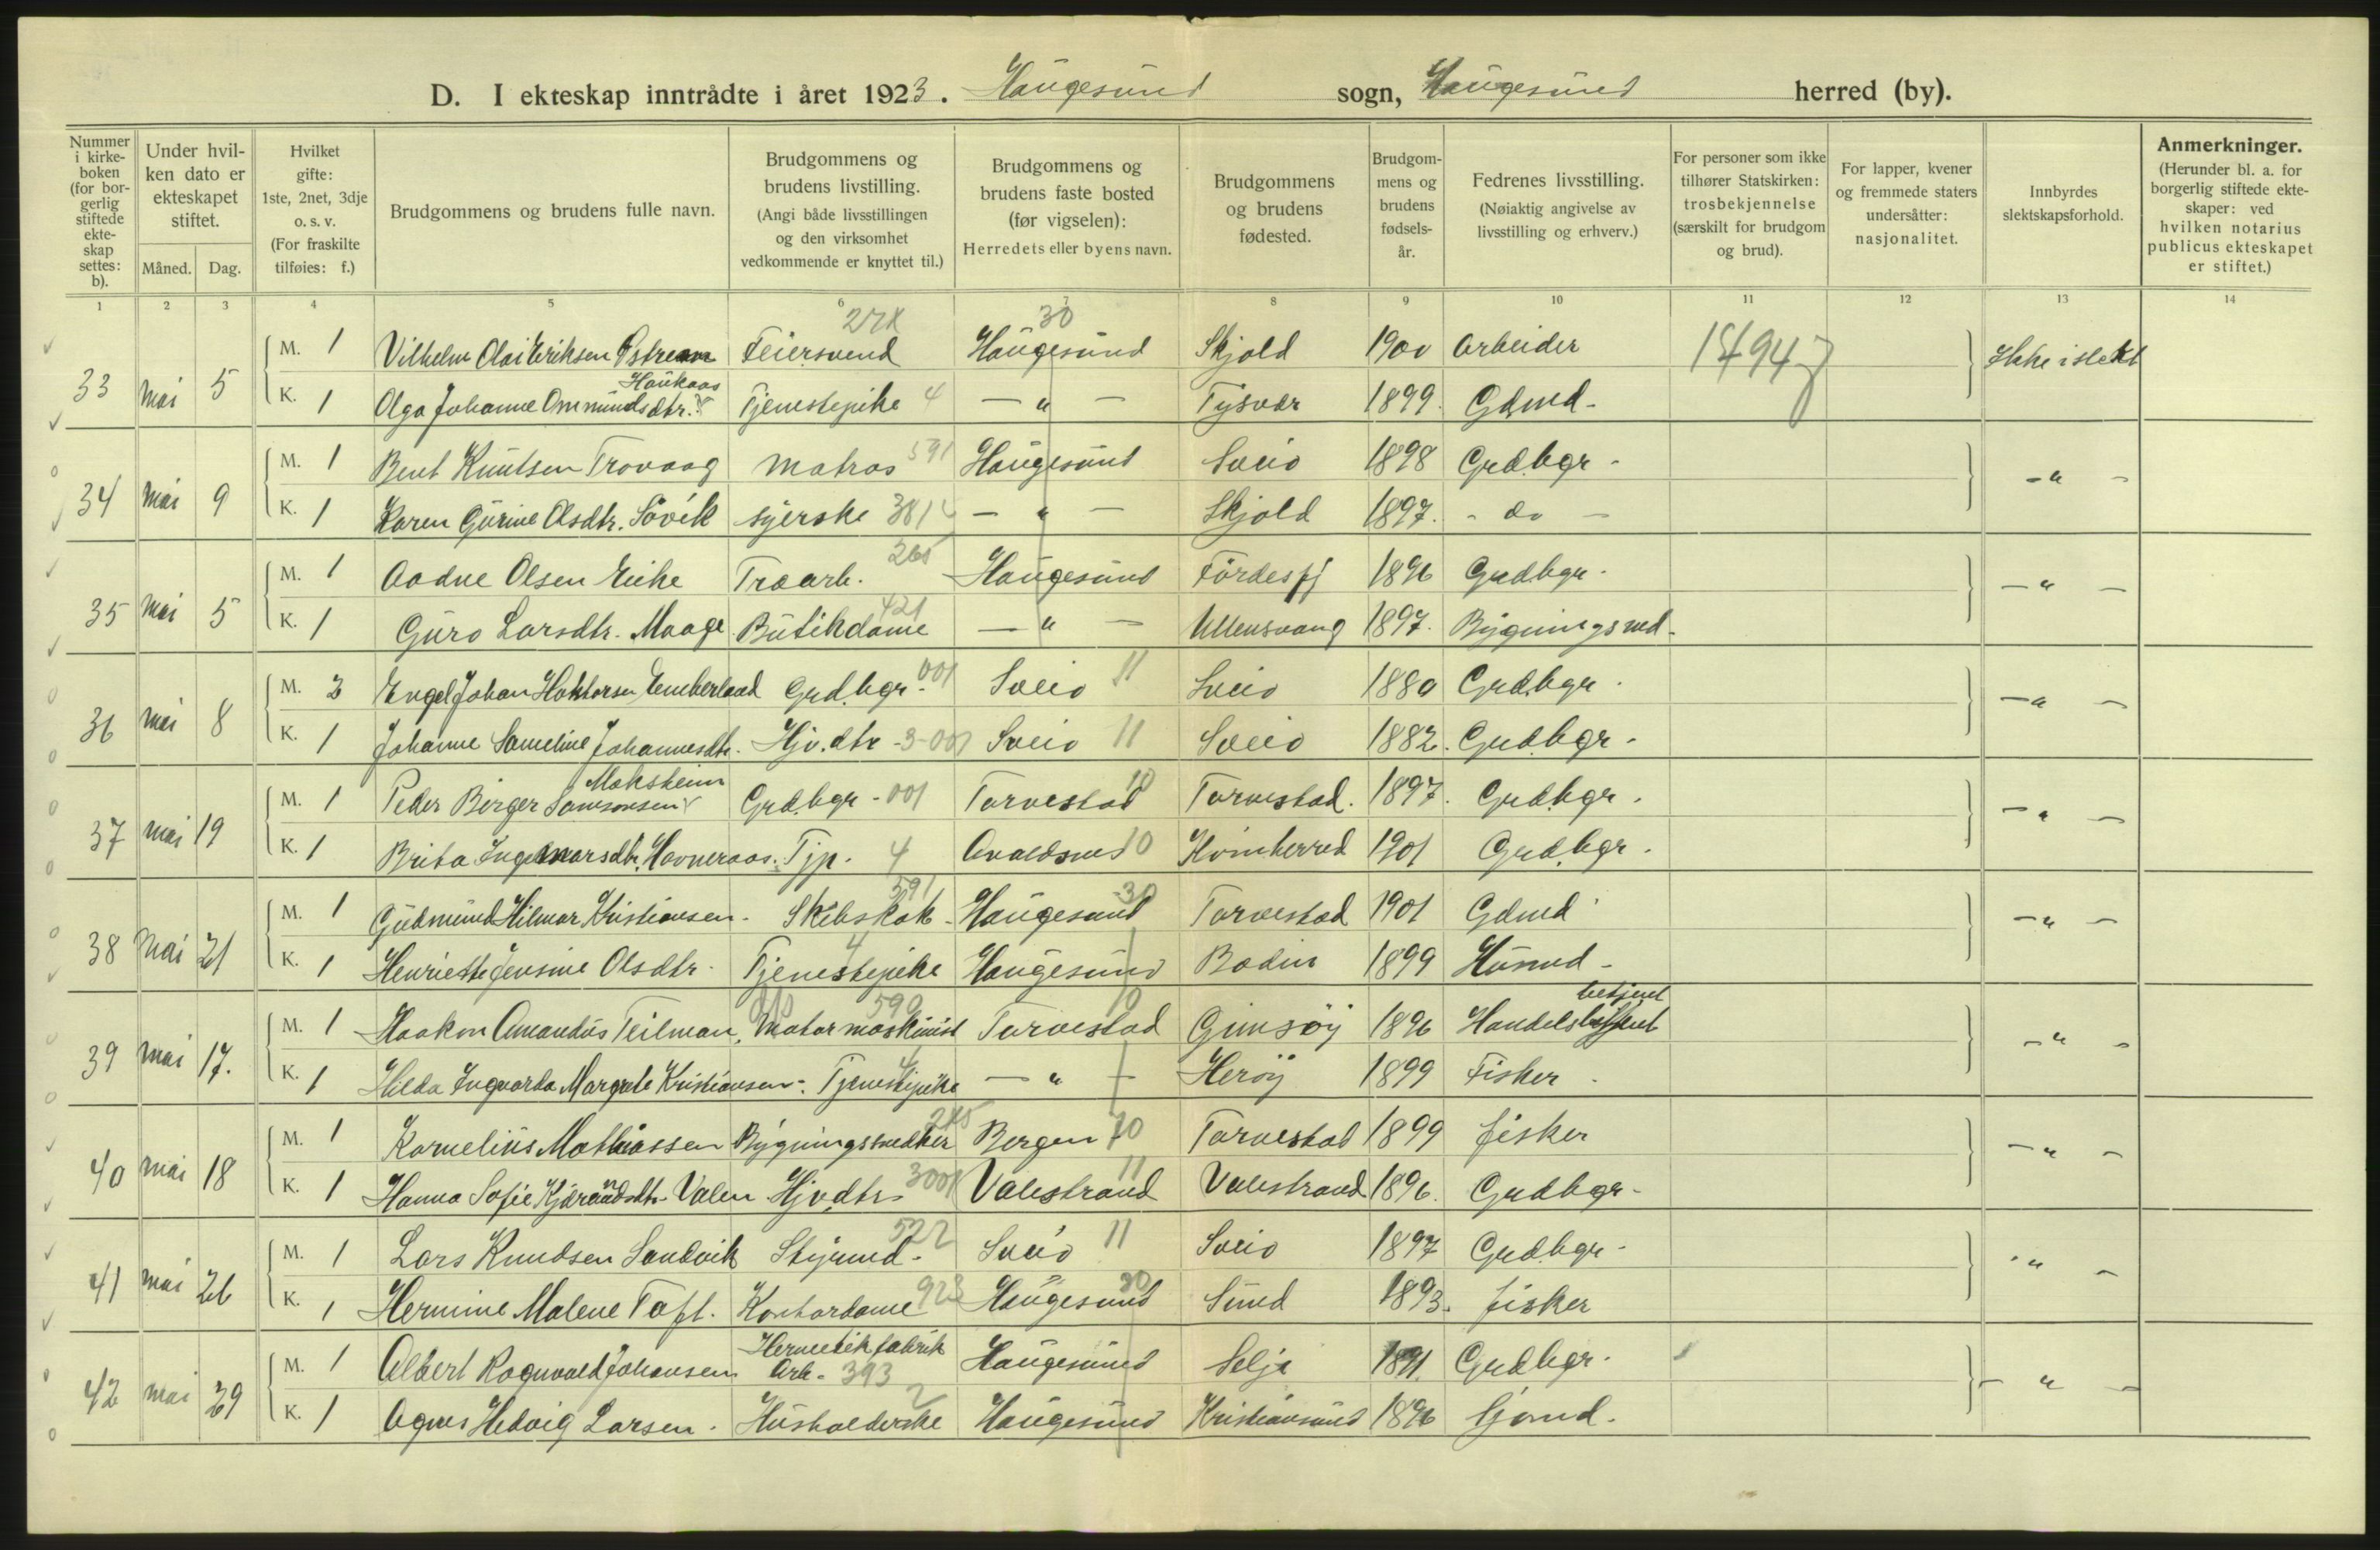 D. I ekteskap inntrådte i året 1923. Haugesund sogn, Haugesund herred (by).
Nummer i kirke-boken (for bor-gerlig stiftede ekte-skap settes: b).
Under hvil-ken dato er ekteskapet stiftet.
Måned. Dag.
Hvilket gifte: 1ste, 2net, 3dje o. s. v. (For fraskilte tilføies: f.)
Brudgommens og brudens fulle navn.
Brudgommens og brudens livstilling. (Angi både livsstillingen og den virksomhet vedkommende er knyttet til.)
Brudgommens og brudens faste bosted (før vigselen): Herredets eller byens navn.
Brudgommens og brudens fødested.
Brudgom-mens og brudens fødsels-år.
Fedrenes livsstilling. (Nøiaktig angivelse av livsstilling og erhverv.)
For personer som ikke tilhører Statskirken: trosbekjennelse (særskilt for brudgom og brud).
For lapper, kvener og fremmede staters undersåtter: nasjonalitet.
Innbyrdes slektskapsforhold.
Anmerkninger. (Herunder bl. a. for borgerlig stiftede ekte-skaper: ved hvilken notarius publicus ekteskapet er stiftet.)
1 2 3 4 5 6 7 8 9 10 11 12 13 14
30
33 mai 5 M. 1 Vilhelm Olai Eriksen Feiersvend Haugesund Skjold 1900 Arbeider Ikke i slekt
Haukaas
K. 1 Olga Johanne Ommundsdtr. Tjenestepike 4 — " — Tysvær 1899. Gdmd.
34 mai 9 M. 1 Bent Knutsen Trovaag Matros 591 Haugesund Sveio 1898 Grdbgr. - " -
K. 1 Karen Gurine Olsdtr. Søvik syerske — " — Skjold 1897. - do -
35 mai 5 M. 1 Aadne Olsen Eike Træarb. 265 Haugesund Førdesfj 1896 Grdbgr. - " -
K. 1 Guro Larsdtr. Maage Butikdame 421 — " — Ullensvang 1897. Bygningsmd.
36 mai 8 M. 2 Engel Johan Grd.bgr. 001 Sveio 11 Sveio 1880 Grdbgr. - " -
K. 1 Johanne Sameline Johannesdtr. Hjv.dtr 3-001 Sveio 11 Sveio 1882. Grdbgr.
Moksheim
37 mai 19 M. 1 Peder Birger Samsonsen Grdbgr. 001 Torvestad 10 Torvestad. 1897. Grdbgr. - " -
K. 1 Brita Ingemarsdtr. Havneraas. Tjp. 4 Avaldsnes 10 Kvinherred 1901 Grdbgr.
38 mai 21 M. 1 Gudmund Hilmar Kristiansen. Skibskok 591 Haugesund 30 Torvestad 1901 Gdmd - " -
K. 1 Henriette Jensine Olsdtr. Tjenestepike 4 Haugesund Bodin 1899 Husmd.
betjent
39 mai 17. M. 1 Haakon Amandus Teilman, Motormaskinist 590 Torvestad 10 Gimsøy 1896 Handelsbetjent - " -
K. 1 Hilda Ingvarda Margrete Kristiansen. Tjenestepike 4 — " — Herøy 1899 Fisker
40 mai 18 M. 1 Kornelius Mathiassen Bygningssnedker Bergen Torvestad 1899 fisker - " -
K. 1 Hanna Sofie Kjærandsdtr. Valen Hjvdtr. 3001 Valestrand 11 Valestrand 1896. Grdbgr.
41 mai 26 M. 1 Lars Knudsen Sandvik Styrmd. 522 Sveio 11 Sveio 1897 Grdbgr. - " -
K. 1 Hermine Malene Toft. Kontordame 923 Haugesund 30 Sund 1893. fisker
Hermetikfabrik
42 mai 29 M. 1 Albert Ragnvald Johansen Arb. 393 Haugesund Selje 1891. Grdbgr. - " -
K. 1 Agnes Hedvig Larsen. Husholderske 2 Haugesund Kristiansund 1896 Sjømd.